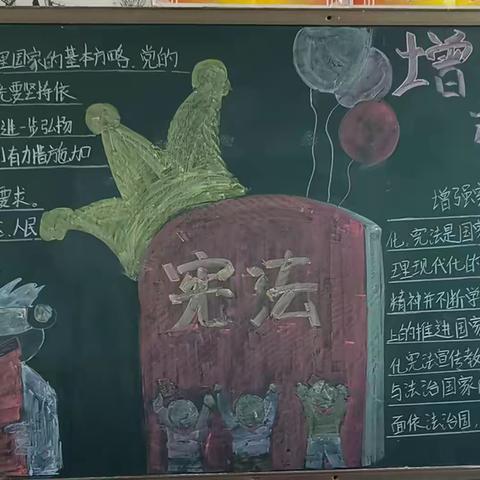 理国家的基本方略.党的
要坚持依
进一步弘扬
有力措施,加
要求。
人民
宪法
增
增强
化,宪法是国家
理现代化的
精神并不断学
上的推进国家
化宪法宣传教
与法治国家
面依法治国,